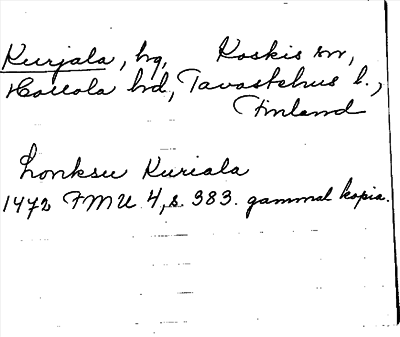 Kurjala, by, Koskis sn,
Hollola hd, Tavastehus l.,
Finland
Lonksu Kuriala
1472 FMU 4, s. 383. gammal kopia.